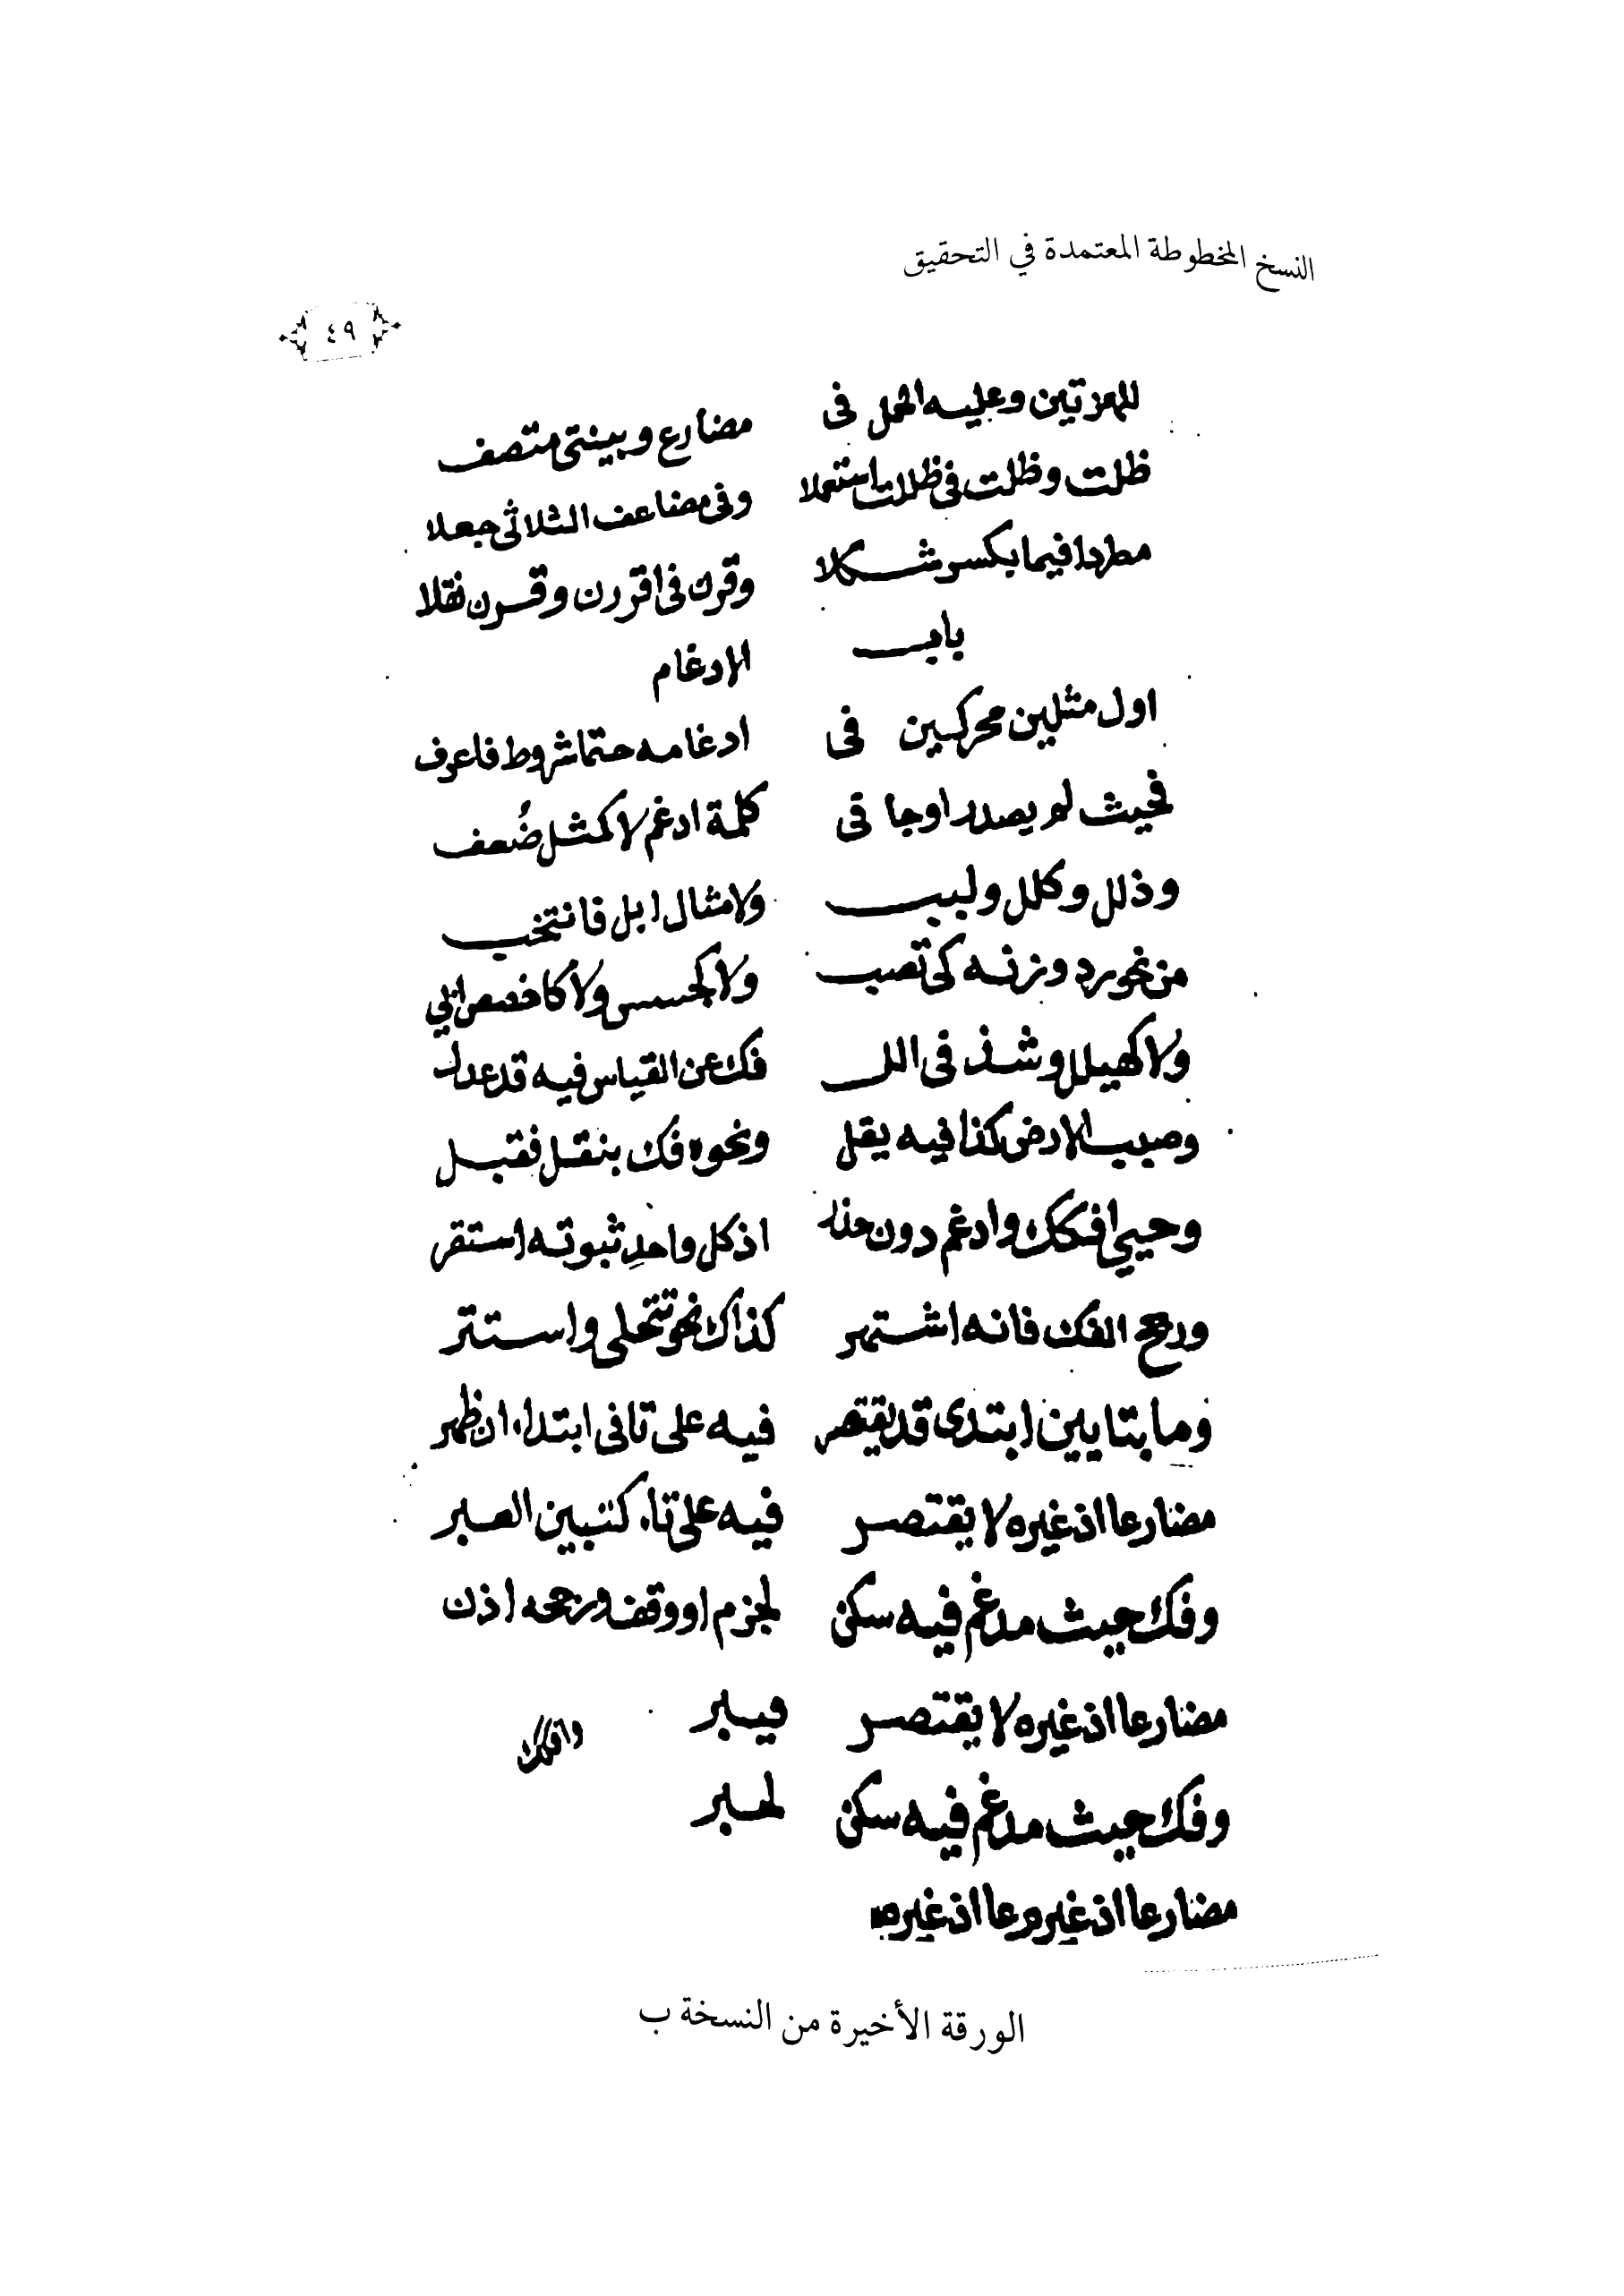 النسخ المخطوطة المعتمدة في التحقيق
٤٩
للهمزتين وعليه الحمل فى مضارع وبينتى متصف
ظلت وظلت فى ظللت استعملا وفى مضاعف الثلاثى جعلا
مطردا فيما بكسر شكلا وقرن فى اقررن وقرن نقلا
باب الادغام
اول مثلين محركين فى ادغامه حتما شروط فاعرف
فحيث لم يصدر اوجا فى كلمة ادغم لا كمثل ضُعف
وذلل وكلل ولبب ولا مثال ابل فانتخب
من نحو رد وزنه كى تصب ولا كجسس ولا كاخصص ابي
ولا كهيلل وشذ فى الل فك عن القياس فيه قد عدل
وصبب الارض كذا فيه يقل ونحوه فك بنقل فقبل
وحيي افكك وادغم دون حذر اذ كل واحدٍ ثبوته استقر
ورجح الفك فانه اشتهر كذاك نحو تتجلى واستتر
وما بتايين ابتدى قد يقتصر فيه على تا فى ابتداء ان ظهر
مضارعا اذ غيره لا يقتصر فيه على تاء كتبين العبر
وفك حيث مدغم فيه سكن لجزم او وقف ورجحه اذن
مضارعا اذ غيره لا يقتصر فيبر
وافكك
وفك حيث مدغم فيه سكن لحبر
مضارعا اذ غيره عا اذ غيره
الورقة الأخيرة من النسخة ب